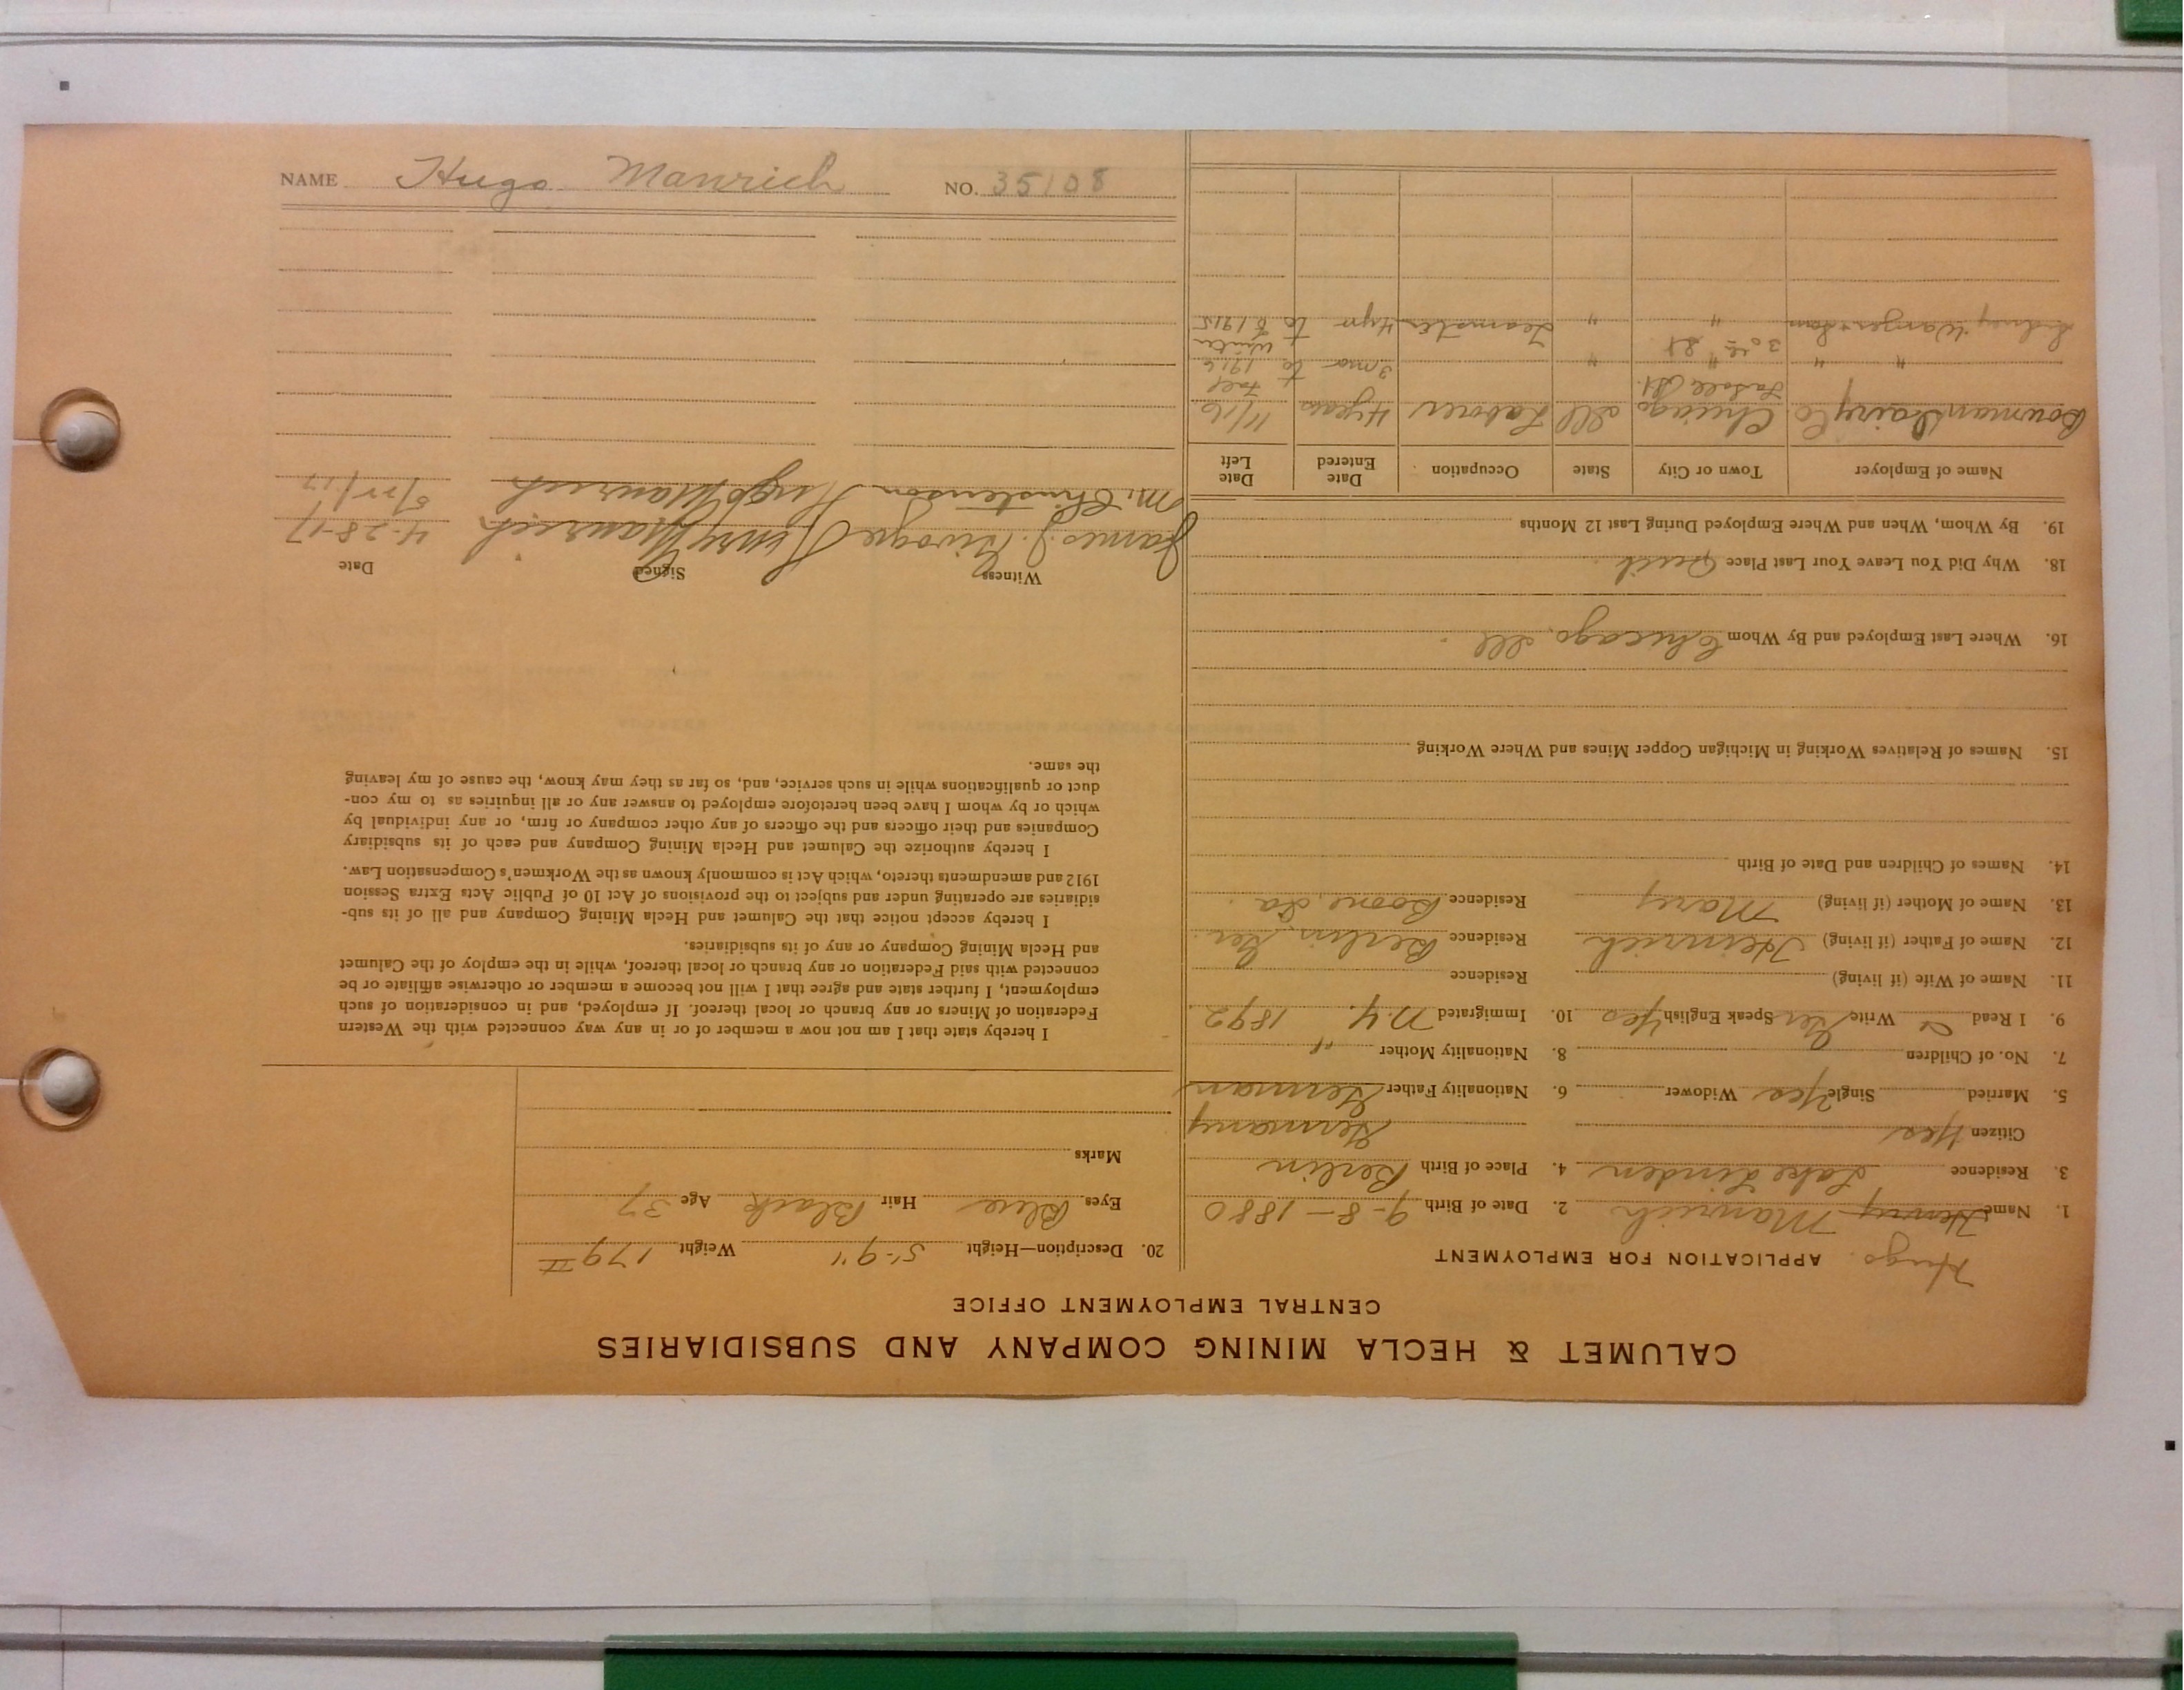 NAME Hugo Manrich NO. 35108
CALUMET & HECLA MINING COMPANY AND SUBSIDIARIES
CENTRAL EMPLOYMENT OFFICE
APPLICATION FOR EMPLOYMENT
Hugo
1. Name Henry Manrich 2. Date of Birth 9-8-1880
3. Residence Lake Linden 4. Place of Birth Berlin
Citizen Yes Germany
5. Married Single Yes Widower 6. Nationality Father German
7. No. of Children 8. Nationality Mother "
9. I Read Write Ger Speak English Yes 10. Immigrated N.Y. 1892
11. Name of Wife (if living) Residence
12. Name of Father (if living) Heinrich Residence Berlin, Ger.
13. Name of Mother (if living) Mary Residence Boone, Ia.
14. Names of Children and Date of Birth
15. Names of Relatives Working in Michigan Copper Mines and Where Working
16. Where Last Employed and By Whom Chicago, Ill
18. Why Did You Leave Your Last Place Quit
19. By Whom, When and Where Employed During Last 12 Months
Name of Employer Town or City State Occupation Date Entered Date Left
Bowman Dairy Co Chicago Ill Laborer 4 years 11/16
LaSalle St. Fall
" " " " 3 mo to 1916
30th St Winter
Sidney " " Teamster 4 yr to 1915
20. Description—Height 5'-9" Weight 179
Eyes Blue Hair Black Age 37
Marks
I hereby state that I am not now a member of or in any way connected with the Western
Federation of Miners or any branch or local thereof. If employed, and in consideration of such
employment, I further state and agree that I will not become a member or otherwise affiliate or be
connected with said Federation or any branch or local thereof, while in the employ of the Calumet
and Hecla Mining Company or any of its subsidiaries.
I hereby accept notice that the Calumet and Hecla Mining Company and all of its sub-
sidiaries are operating under and subject to the provisions of Act 10 of Public Acts Extra Session
1912 and amendments thereto, which Act is commonly known as the Workmen's Compensation Law.
I hereby authorize the Calumet and Hecla Mining Company and each of its subsidiary
Companies and their officers and the officers of any other company or firm, or any individual by
which or by whom I have been heretofore employed to answer any or all inquiries as to my con-
duct or qualifications while in such service, and, so far as they may know, the cause of my leaving
the same.
Witness Signed Date
James J. Henry Manrich 4-28-17
M. Christenson Hugo Manrich